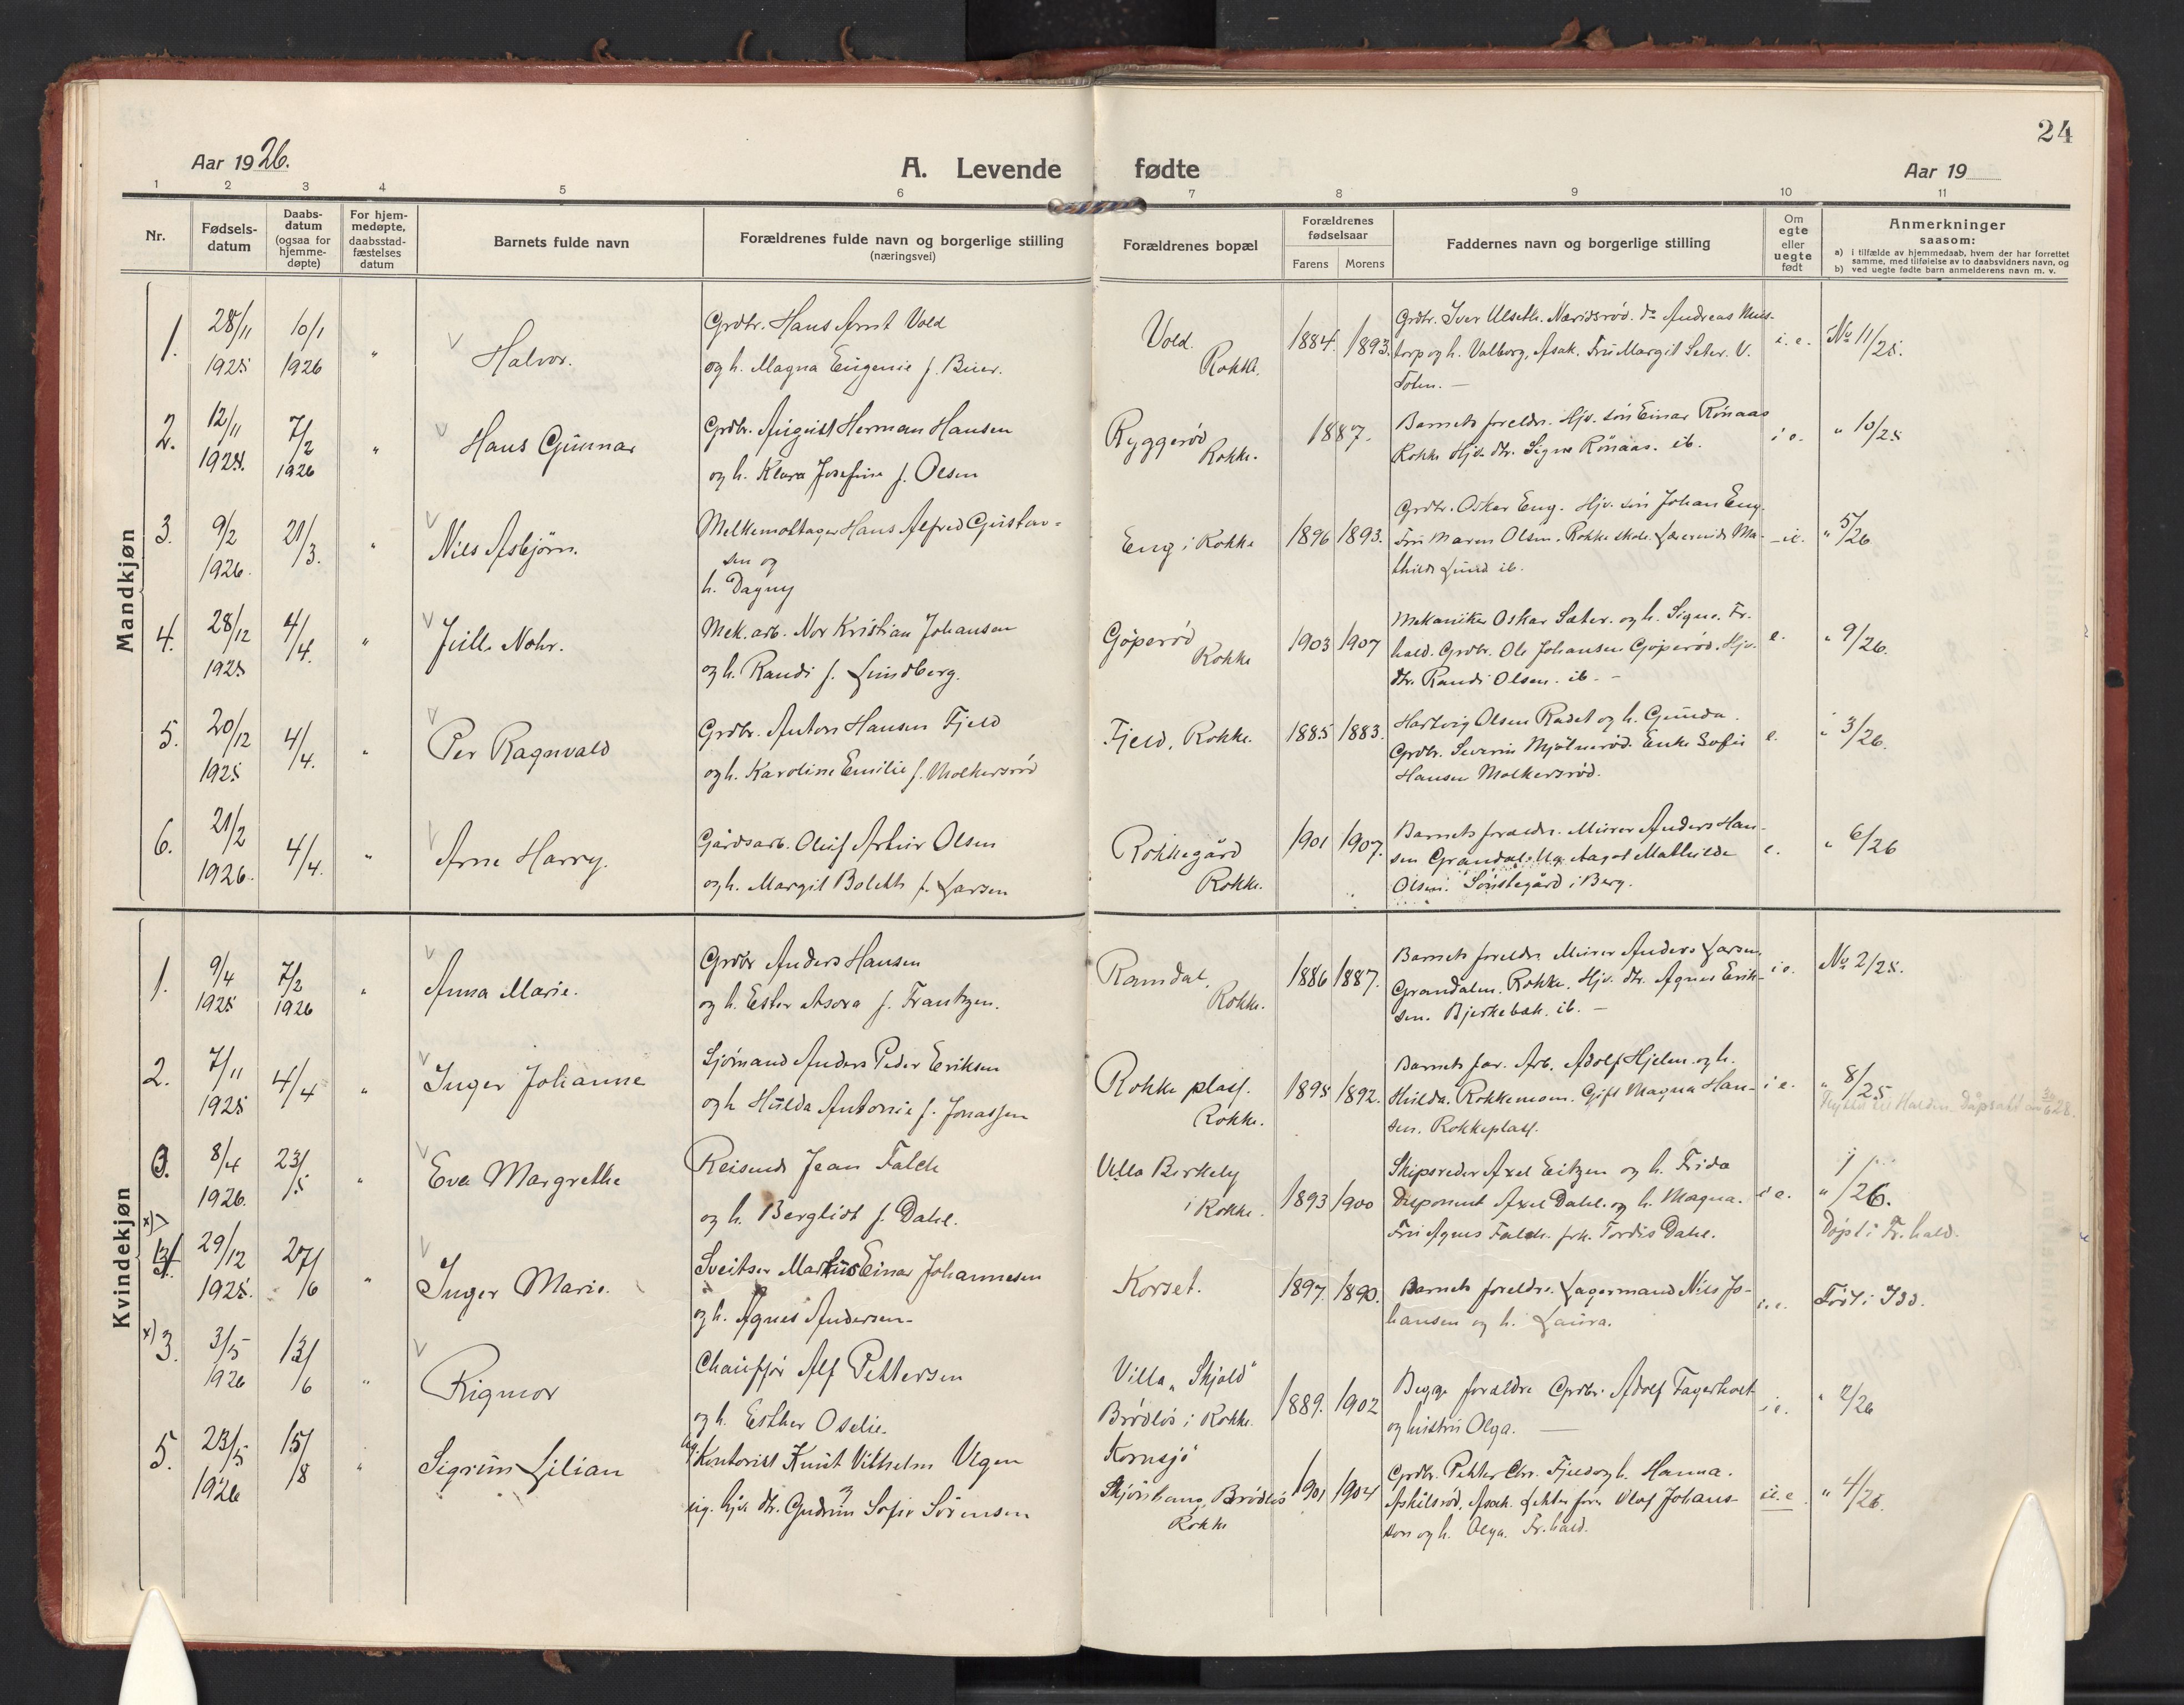 24
Aar 1926.
A. Levende fødte
Aar 19
1 2 3 4 5 6 7 8 9 10 11
Nr.
Fødsels-
datum
Daabs-
datum
(ogsaa for
hjemme-
døpte)
For hjem-
medøpte,
daabsstad-
fæstelses
datum
Barnets fulde navn
Forældrenes fulde navn og borgerlige stilling
(næringsvei)
Forældrenes bopæl
Forældrenes
fødselsaar
Farens Morens
Faddernes navn og borgerlige stilling
Om
egte
eller
uegte
født
Anmerkninger
saasom:
a) i tilfælde av hjemmedaab, hvem der har forrettet
samme, med tilføielse av to daabsvidners navn, og
b) ved uegte fødte barn anmelderens navn m. v.
Mandkjøn
1.
28/11
1925
10/1
1926
"
Halvor.
Grdbr. Hans Arnt Vold
og h. Magna Eugenie f. Buer.
Vold.
Rokke.
1884. 1893.
Grdbr. Iver Ulseth. Næridsrød. do Andreas Mus-
torp og h. Valborg, Asak. Fru Margit Seter. V.
Toten. —
i. e.
No 11/25.
2.
12/11
1925.
7/2
1926
"
Hans Gunnar
Grdbr. August Herman Hansen
og h. Klara Josefine f. Olsen
Ryggerød
Rokke.
1887.
Barnets foreldre. Hjv. søn Einar Rønaas
Rokke Hjv. dtr. Signe Rønaas. ib.
i e.
" 10/25
3.
9/2
1926.
21/3.
"
Nils Asbjørn.
Melkemottager Hans Alfred Gustav-
sen og
h. Dagny
Eng i Rokke
1896 1893.
Grdbr. Oskar Eng. Hjv. søn Johan Eng.
Fru Maren Olsen. Rokke skole. Lærerinde Ma-
thilde Lund ib.
i e.
" 5/26
4.
28/12
1925
4/4.
"
Juill. Nohr.
Mek. arb. Nor Kristian Johansen
og h. Randi f. Lundberg.
Gøperød
Rokke
1903 1907
Mekaniker Oskar Sæter. og h. Signe. Fr.
hald. Grdbr. Ole Johansen Gøperød. Hjv.
dtr. Randi Olsen. ib. -
e.
" 9/26.
5.
20/12
1925
4/4.
"
Per Ragnvald
Grdbr. Anton Hansen Fjeld
og h. Karoline Emilie f. Molkersrød
Fjeld, Rokke.
1885 1883.
Hartvig Olsen Radet og h. Gunda.
Grdbr. Severin Mjølnerød. Enke Sofie
Hansen Molkersrød.
e.
" 3/26.
6.
21/2
1926.
4/4.
"
Arne Harry.
Gårdsarb. Oluf Arthur Olsen
og h. Margit Boleth f. Larsen
Rokkegård
Rokke.
1901 1907.
Barnets foreldre. Murer Anders Han-
sen Grandal. Ug. Aagot Mathilde
Olsen. Sønstegård i Berg.
e.
" 6/26
Kvindekjøn
1.
9/4
1925
7/2
1926
"
Anna Marie.
Grdbr Anders Hansen
og h. Ester Asora f. Frantzen.
Ramdal,
Rokke.
1886 1887.
Barnets foreldre Murer Anders Larsen,
Grandalen. Rokke. Hjv. dtr. Agnes Erik-
sen. Bjerkebæk. ib. —
i e.
No 2/25.
2.
7/11
1925
4/4
"
Inger Johanne
Sjømand Anders Peder Eriksen
og h Hulda Antonie f. Jonassen
Rokke plass.
Rokke.
1895 1892.
Barnets far. Arb. Adolf Hjelm. og h.
Hulda. Rokkemom. Gift Magna Han-
sen. Rokkeplass.
i e.
" 8/25
Flyttet til Halden. Dåpsatt 30/6 28.
3.
8/4
1926.
23/5
"
Eva Margrethe
Reisende Jean Falch
og h. Bergliot f. Dahl.
Villa Birkely
i Rokke.
1893 1900
Skipsreder Axel Eitzen og h. Frida
Disponent Axel Dahl. og h. Magna.
Fru Agnes Falch. frk. Tordis Dahl.
i e.
" 1/26.
Døpt i Fr. hald.
x)
4.
29/12
1925.
27/6
"
Inger Marie.
Sveitser Markus Einar Johannesen
og h. Agnes Andersen.
Korset.
1897. 1890.
Barnets foreldre. Lagermand Nils Jo-
hansen og h. Laura.
i. e.
Født i Idd.
x) 3.
3/5
1926
13/6
"
Rigmor
Chauffør Alf Pettersen
og h. Esther Oselie.
Villa "Skjold"
Brødløs i Rokke.
1889. 1902
Begge foreldre Grdbr. Adolf Fagerholt
og hustru Olga. —
i e.
" 2/26
5.
23/5
1926
15/8
"
Sigrun Lilian
ug. Kontorist Knut Vilhelm Vegen
og
ug. hjv. dtr. Gudrun Sofie Sörensen
Kornsjø
Skjønhaug, Brødløs
Rokke
1901 1904
Grdbr. Petter Chr. Fjeld og h. Hanna.
Askilsrød, Asak. Olaf Johans-
son og h. Olga. Fr. hald.
u. e.
" 4/26.